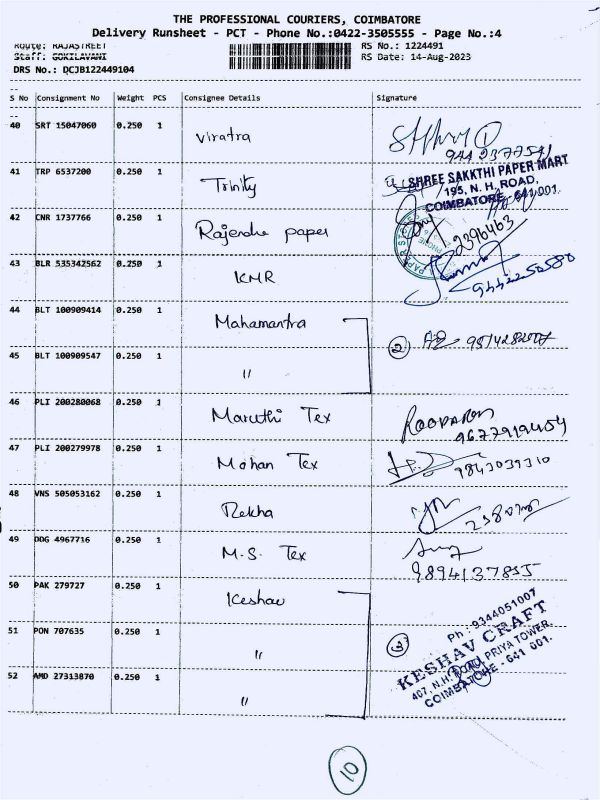 THE PROFESSIONAL COURIERS, COIMBATORE
Delivery Runsheet - PCT - Phone No.:0422-3505555 - Page No.:4
Route: RAJASTREET RS No.: 1224491
Staff: GOKILAVANI RS Date: 14-Aug-2023
DRS No.: DCJB122449104
S No Consignment No Weight PCS Consignee Details Signature
40 SRT 15047060 0.250 1 Viratra
41 TRP 6537200 0.250 1 Trinity
SHREE SAKKTHI PAPER MART
195, N. H. ROAD,
COIMBATORE - 641 001.
42 CNR 1737766 0.250 1 Rajendra paper 2396463
43 BLR 535342562 0.250 1 KMR
44 BLT 100909414 0.250 1 Mahamantra
2
45 BLT 100909547 0.250 1 "
46 PLI 200280068 0.250 1 Maruthi Tex
47 PLI 200279978 0.250 1 Mohan Tex 9843039310
48 VNS 505053162 0.250 1 Rekha
49 DDG 4967716 0.250 1 M.S. Tex
9894137855
50 PAK 279727 0.250 1 Keshav
51 PON 707635 0.250 1 "
3
52 AMD 27313870 0.250 1 "
Ph : 9344051007
KESHAV CRAFT
407, N.H. ROAD, PRIYA TOWER,
COIMBATORE - 641 001.
10